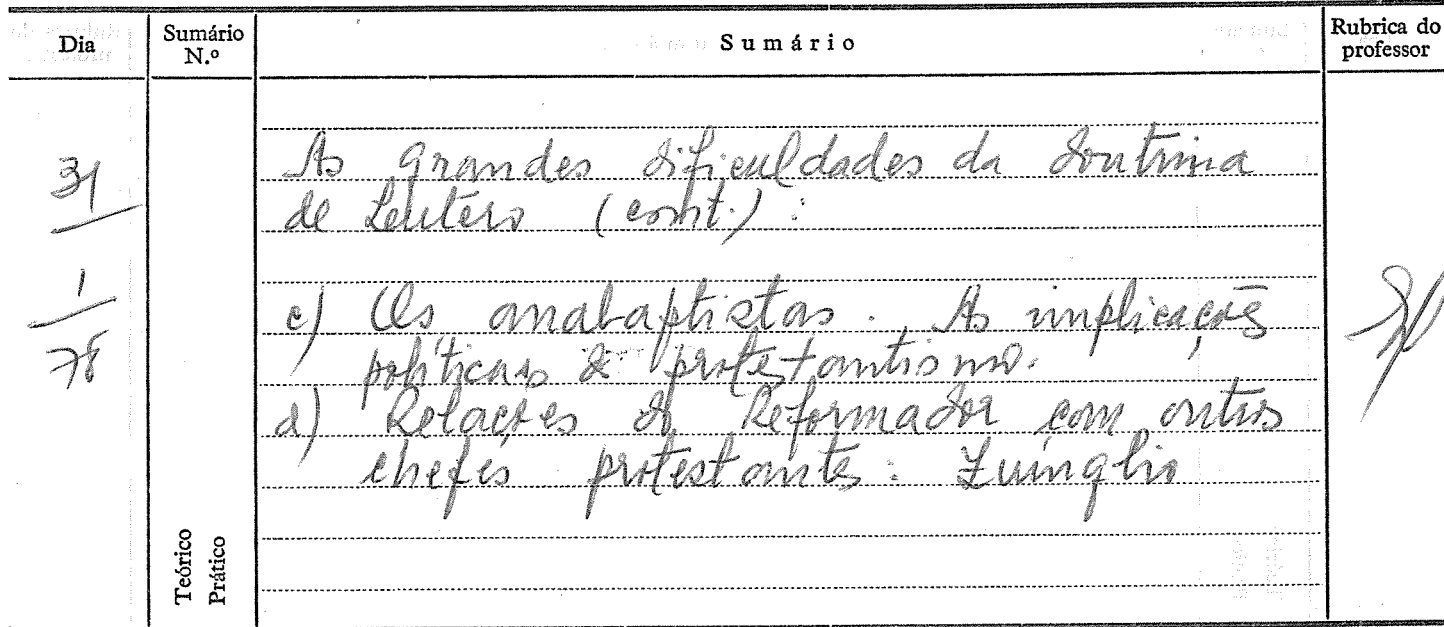 Dia
Sumário N.º
Sumário
Rubrica do professor
31
1
78
As grandes dificuldades da doutrina
de Lutero (cont.) :
c) Os anabaptistas. As implicações
políticas do protestantismo.
d) Relações do Reformador com outros
chefes protestantes: Zuínglio
Teórico
Prático